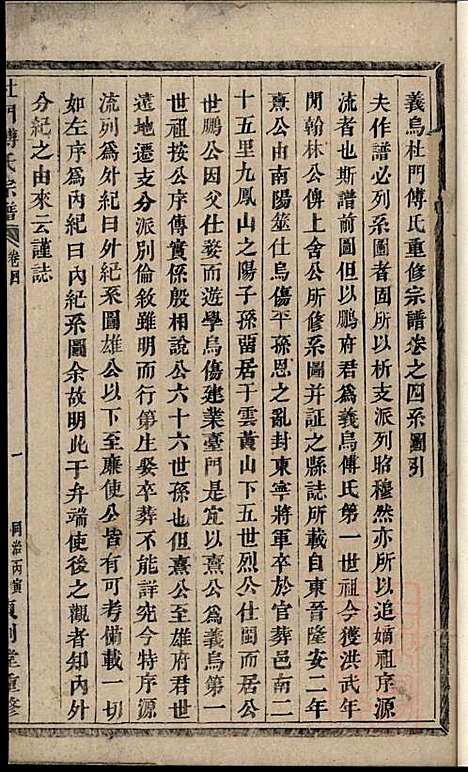 義烏杜門傅氏重修宗譜卷之四系圖引
夫作譜必列系圖者固所以析支派列昭穆然亦所以追嫡祖序源
流者也斯譜前圖但以鵬府君爲義烏傅氏第一世祖今獲洪武年
閒翰林公俾上舍公所修系圖并証之縣誌所載自東晉隆安二年
熹公由南陽筮仕烏傷平孫恩之亂封東寧將軍卒於官葬邑南二
十五里九鳳山之陽子孫留居于雲黃山下五世烈公仕閩而居公
世鵬公因父仕婺而遊學烏傷建業臺門是宜以熹公爲義烏第一
世祖按公序傳實係殷相說公六十六世孫也但熹公至雄府君世
遠地遷支分派別倫敘雖明而行第生娶卒葬不能詳究今特序源
流列爲外紀曰外紀系圖雄公以下至廉使公皆有可考備載一切
如左序爲內紀曰內紀系圖余故明此于弁端使後之觀者知內外
分紀之由來云謹誌
杜門傅氏宗譜
卷四
一
同治丙寅
重修